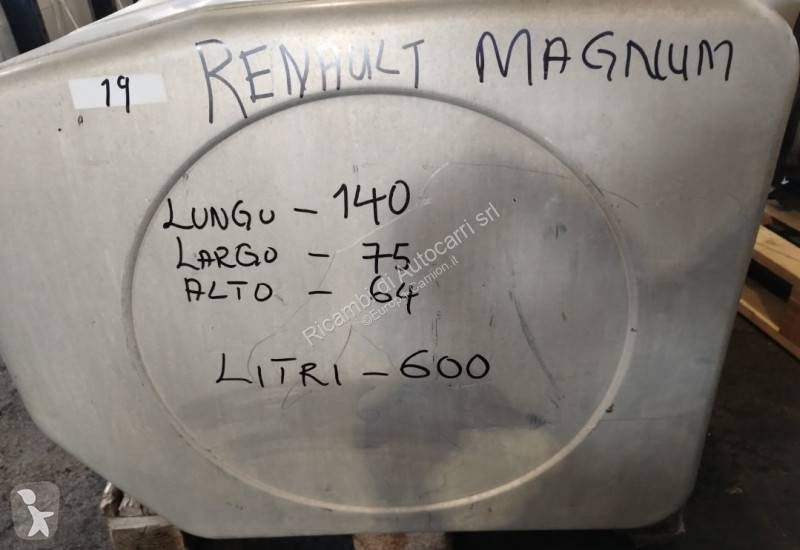 RENAULT MAGNUM
19
LUNGO - 140
LARGO - 75
ALTO - 64
LITRI - 600
Ricambi di Autocarri srl
©Europa-Camion.it